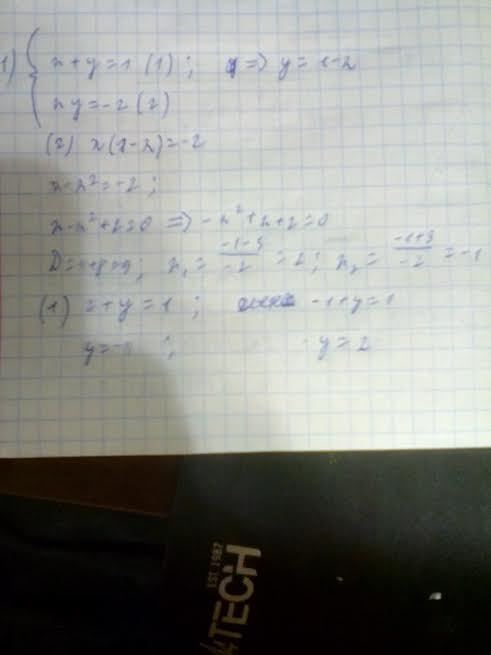 1) { x + y = 1 (1) ; => y = 1 - x
xy = -2 (2)
(2) x(1-x) = -2
x - x² = -2 ;
x - x² + 2 = 0 => -x² + x + 2 = 0
D = 1 + 8 = 9 ; x₁ = (-1-3)/(-2) = 2 ; x₂ = (-1+3)/(-2) = -1
(1) 2 + y = 1 ; -1 + y = 1
y = -1 ; y = 2
EST 1987
4TECH